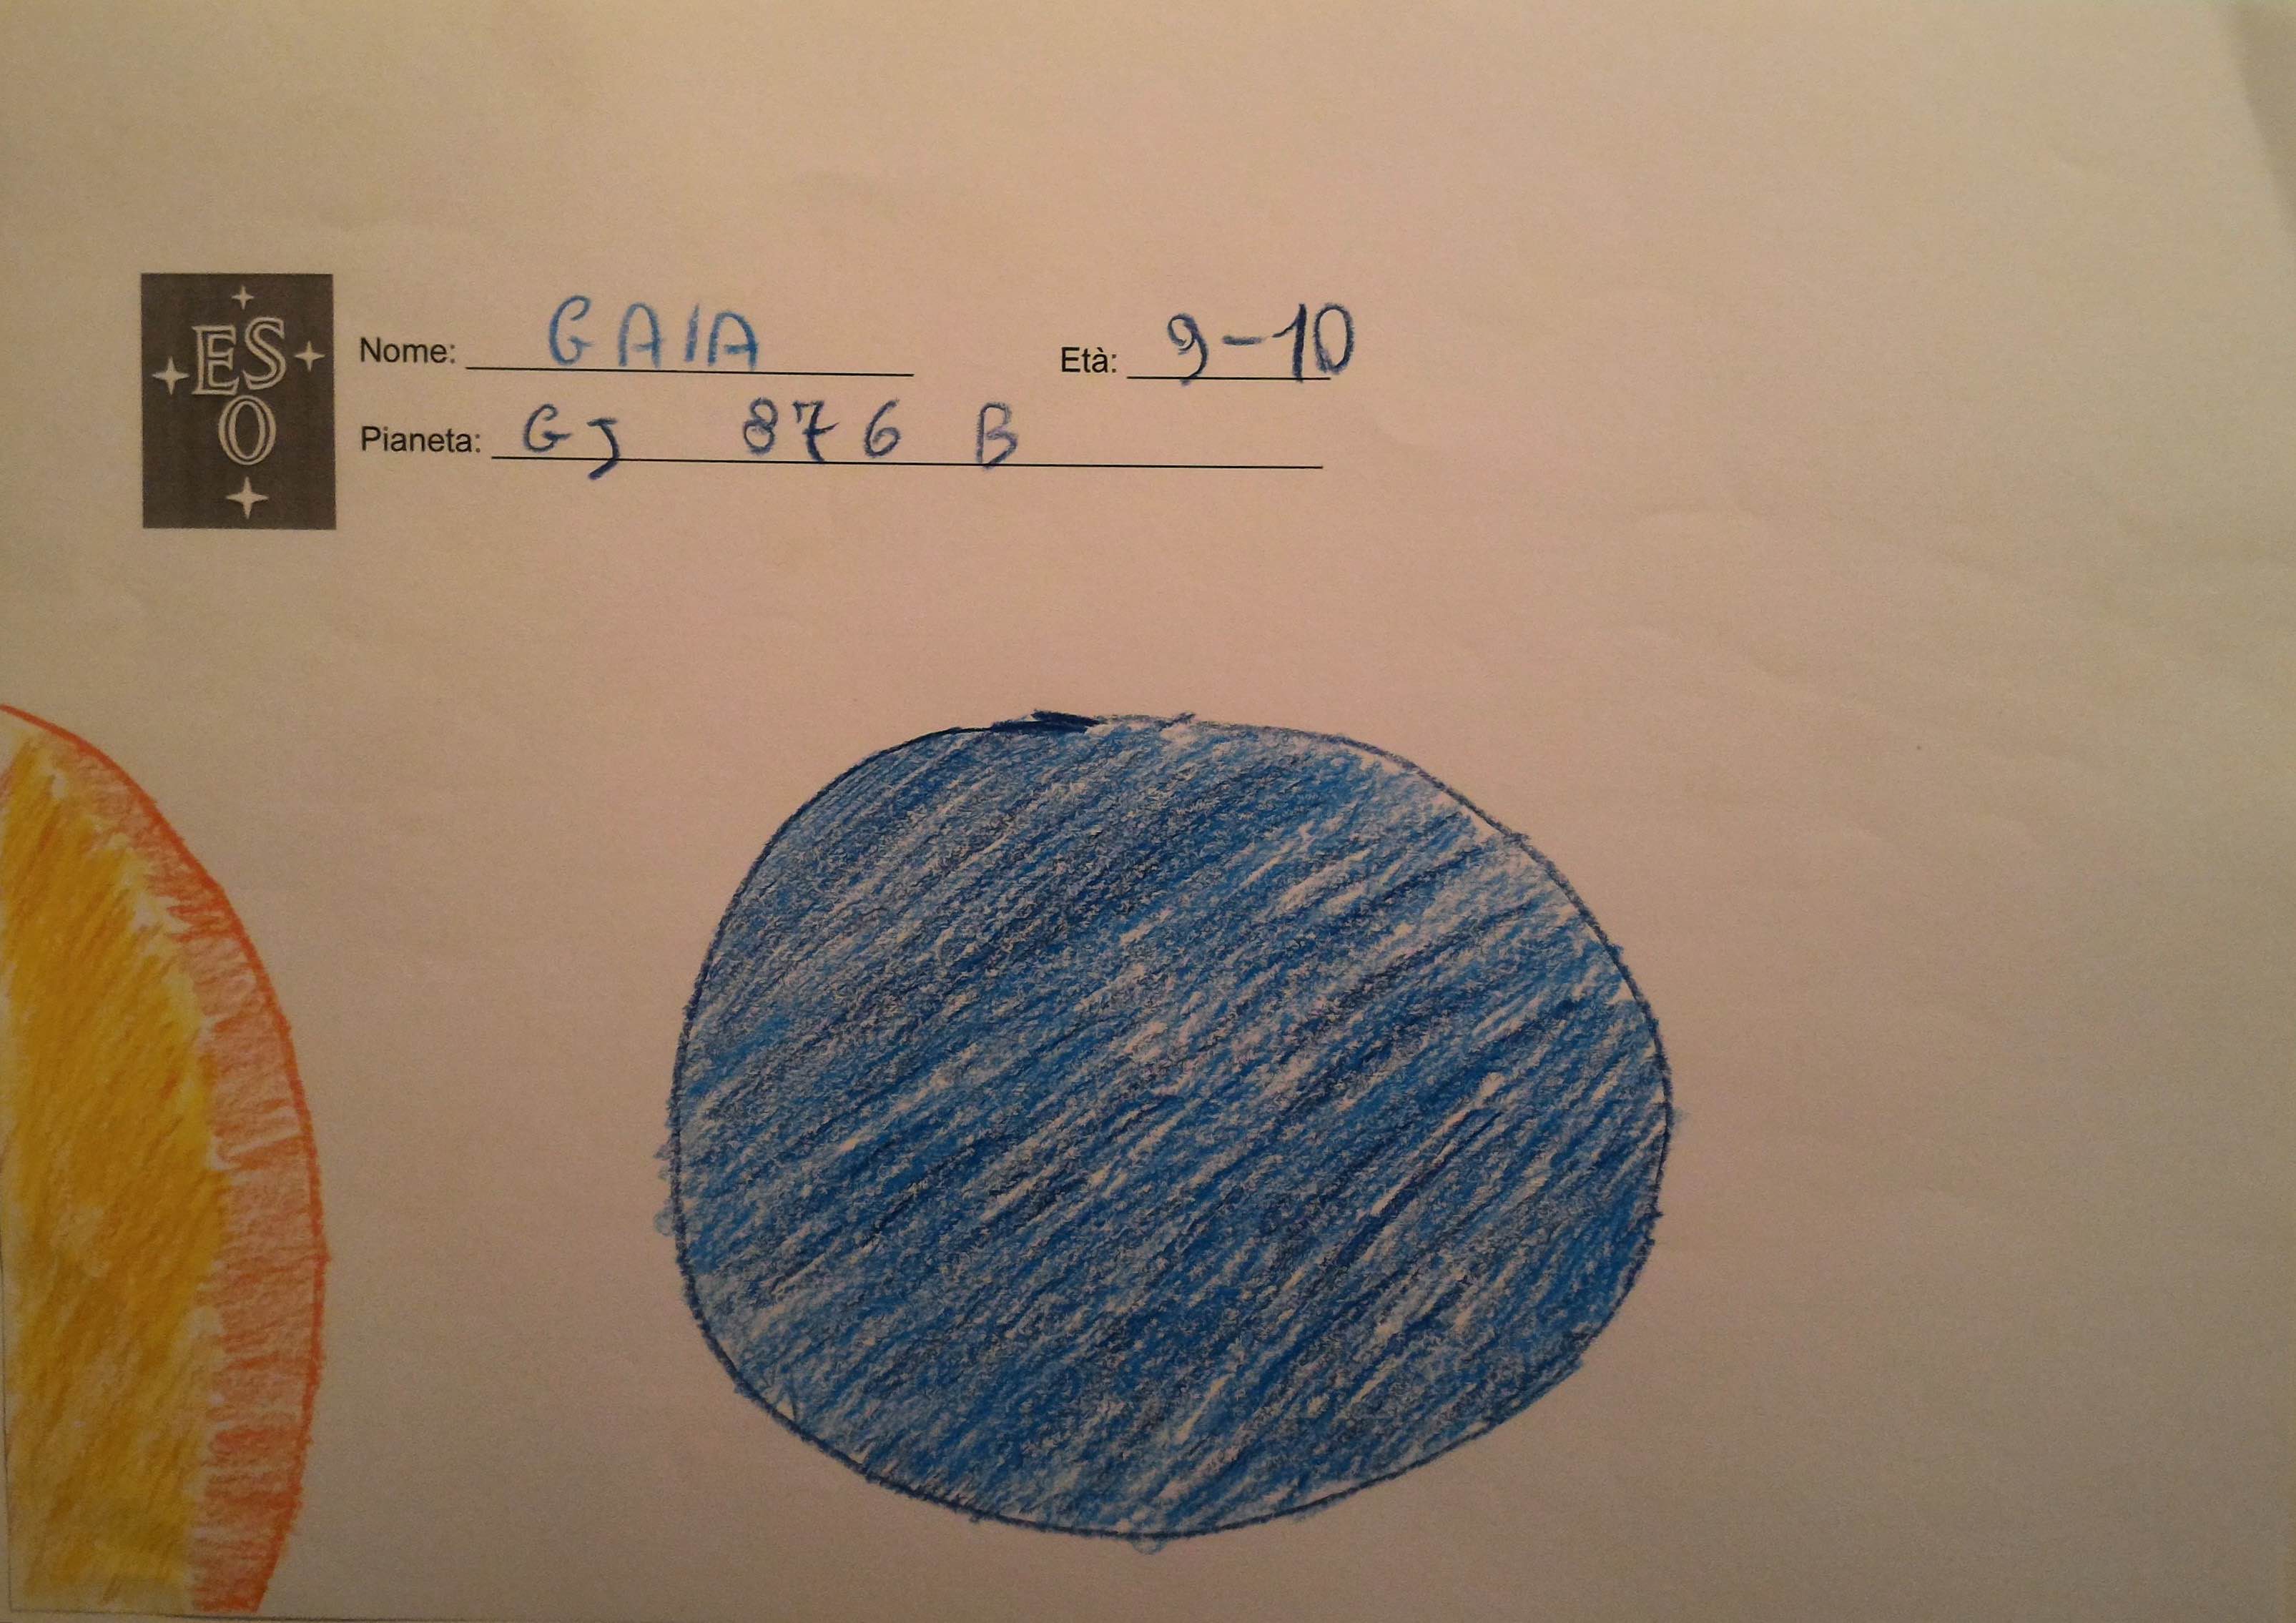 ES
O
Nome: GAIA Età: 9-10
Pianeta: GJ 876 B